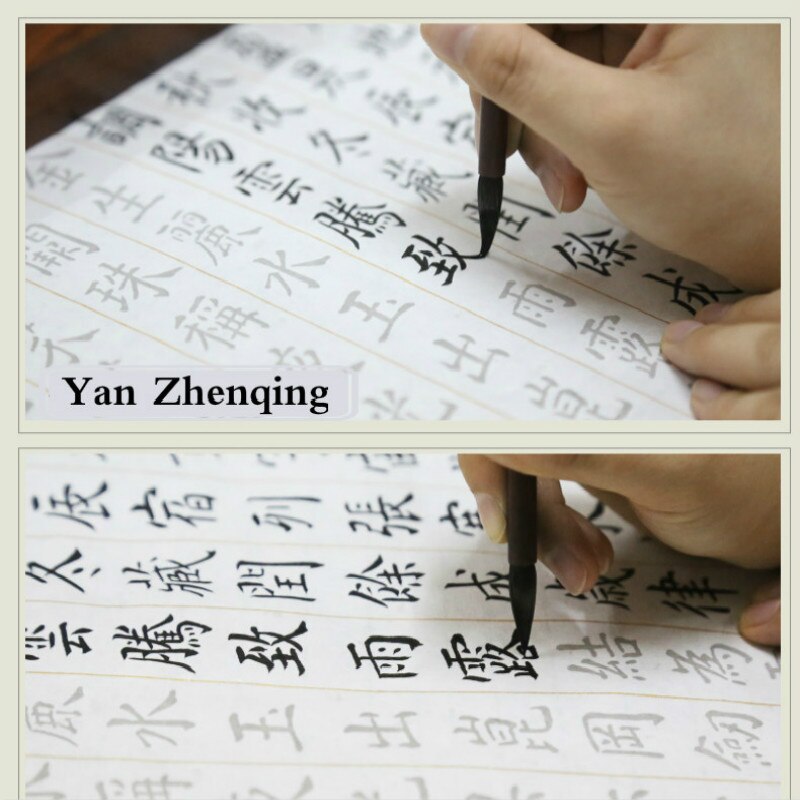 昃辰宿
秋收冬藏閏餘成
調陽雲騰致雨露
金生麗水玉出崑
闕珠稱夜光
Yan Zhenqing
辰宿列張寒
冬藏閏餘成歲律
雲騰致雨露結為
麗水玉出崑岡劍